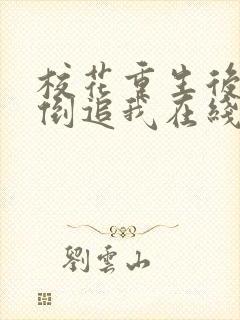 校花重生後
倒追我在綫
劉雲山